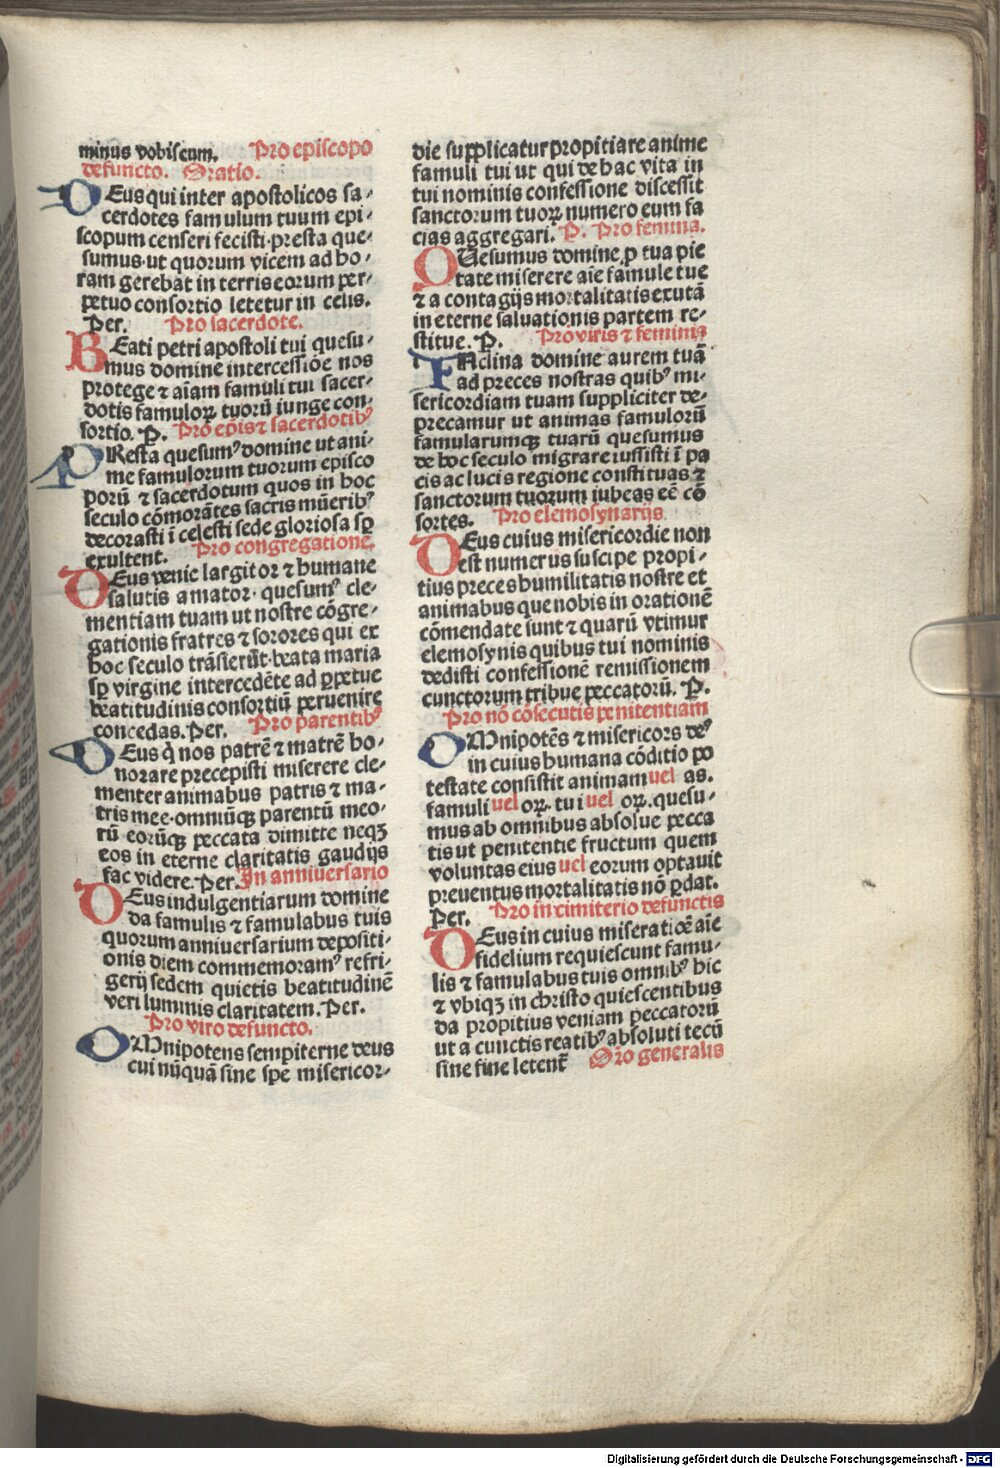 minus vobiscum. Pro episcopo
defuncto. Oratio.
DEus qui inter apostolicos sa-
cerdotes famulum tuum epi-
scopum censeri fecisti·presta que-
sumus·ut quorum vicem ad ho-
ram gerebat in terris eorum per-
petuo consortio letetur in celis.
Per. Pro sacerdote.
BEati petri apostoli tui quesu-
mus domine intercessiõe nos
protege ⁊ aĩam famuli tui sacer-
dotis famuloꝝ tuorũ iunge con-
sortio. P. Pro ep̃is ⁊ sacerdotibꝰ
PResta quesumꝰ domine ut ani-
me famulorum tuorum episco
porũ ⁊ sacerdotum quos in hoc
seculo cõmorãtes sacris mũeribꝰ
decorasti ĩ celesti sede gloriosa sp̃
exultent. Pro congregatione.
DEus venie largitor ⁊ humane
salutis amator·quesumꝰ cle-
mentiam tuam ut nostre cõgre-
gationis fratres ⁊ sorores qui ex
hoc seculo trãsierũt·beata maria
sp̃ virgine intercedẽte ad ꝑpetue
beatitudinis consortiũ peruenire
concedas. Per. Pro parentibꝰ
DEus q̃ nos patrẽ ⁊ matrẽ ho-
norare precepisti miserere cle-
menter animabus patris ⁊ ma-
tris mee·omniũqꝫ parentũ meo-
rũ eorũqꝫ peccata dimitte neqꝫ
eos in eterne claritatis gaudijs
fac videre. Per. In anniuersario
DEus indulgentiarum domine
da famulis ⁊ famulabus tuis
quorum anniuersarium depositi-
onis diem commemoramꝰ refri-
gerij sedem quietis beatitudinẽ
veri luminis claritatem. Per.
Pro viro defuncto.
OMnipotens sempiterne deus
cui nũquã sine spẽ misericor-
die supplicatur propitiare anime
famuli tui ut qui de hac vita in
tui nominis confessione discessit
sanctorum tuoꝝ numero eum fa
cias aggregari. P. Pro femina.
QUesumus domine ꝓ tua pie
tate miserere aĩe famule tue
⁊ a contagijs mortalitatis exutã
in eterne saluationis partem re-
stitue. P. Pro viris ⁊ feminis
INclina domine aurem tuã
ad preces nostras quibꝰ mi-
sericordiam tuam suppliciter de-
precamur ut animas famulorũ
famularumqꝫ tuarũ quesumus
de hoc seculo migrare iussisti ĩ pa
cis ac lucis regione constituas ⁊
sanctorum tuorum iubeas eẽ cõ
sortes. Pro elemosynarijs
DEus cuius misericordie non
est numerus suscipe propi-
tius preces humilitatis nostre et
animabus que nobis in orationẽ
cõmendate sunt ⁊ quarũ vtimur
elemosynis quibus tui nominis
dedisti confessionẽ remissionem
cunctorum tribue peccatorũ. P.
Pro nõ cõsecutis penitentiam
OMnipotẽs ⁊ misericors deꝰ
in cuius humana cõditio po
testate consistit animam uel as.
famuli uel oꝝ· tui uel oꝝ. quesu-
mus ab omnibus absolue pecca
tis ut penitentie fructum quem
voluntas eius uel eorum optauit
preuentus mortalitatis nõ ꝑdat.
Per. Pro in cimiterio defunctis
DEus in cuius miseratiõe aĩe
fidelium requiescunt famu-
lis ⁊ famulabus tuis omnibꝰ hic
⁊ vbiqꝫ in christo quiescentibus
da propitius veniam peccatorũ
ut a cunctis reatibꝰ absoluti tecũ
sine fine letent̃ Or̃o generalis
Digitalisierung gefördert durch die Deutsche Forschungsgemeinschaft - DFG